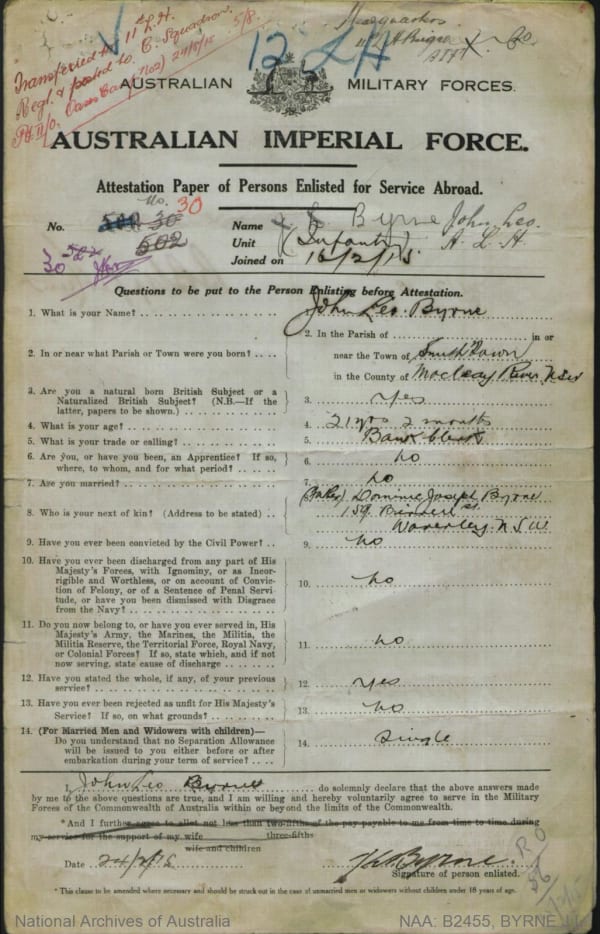 Transferred to 11 L.H.
Regt. & posted to C. Squadron.
Pt II/O. 24/8/15 5/8
Headquarters
12 LH
AUSTRALIAN MILITARY FORCES.
AUSTRALIAN IMPERIAL FORCE.
Attestation Paper of Persons Enlisted for Service Abroad.
No. 30
No. 500 30 Name Byrne John Leo.
502 Unit (Infantry) A. L. H
30 502 Joined on 16/2/15
Questions to be put to the Person Enlisting before Attestation.
1. What is your Name? John Leo Byrne
2. In or near what Parish or Town were you born? 2. In the Parish of in or
near the Town of Smith Town
in the County of Macleay River NSW
3. Are you a natural born British Subject or a
Naturalized British Subject? (N.B.—If the
latter, papers to be shown.) 3. Yes
4. What is your age? 4. 21 yrs 2 months
5. What is your trade or calling? 5. Bank Clerk
6. Are you, or have you been, an Apprentice? If so,
where, to whom, and for what period? 6. no
7. Are you married? 7. no
8. Who is your next of kin? (Address to be stated) 8. (Father) Dominic Joseph Byrne
159 St
Waverley N S W
9. Have you ever been convicted by the Civil Power? 9. no
10. Have you ever been discharged from any part of His
Majesty's Forces, with Ignominy, or as Incor-
rigible and Worthless, or on account of Convic-
tion of Felony, or of a Sentence of Penal Servi-
tude, or have you been dismissed with Disgrace
from the Navy? 10. no
11. Do you now belong to, or have you ever served in, His
Majesty's Army, the Marines, the Militia, the
Militia Reserve, the Territorial Force, Royal Navy,
or Colonial Forces? If so, state which, and if not
now serving, state cause of discharge 11. no
12. Have you stated the whole, if any, of your previous
service? 12. yes
13. Have you ever been rejected as unfit for His Majesty's
Service? If so, on what grounds? 13. no
14. (For Married Men and Widowers with children)—
Do you understand that no Separation Allowance
will be issued to you either before or after
embarkation during your term of service? 14. Single
I, John Leo Byrne do solemnly declare that the above answers made
by me to the above questions are true, and I am willing and hereby voluntarily agree to serve in the Military
Forces of the Commonwealth of Australia within or beyond the limits of the Commonwealth.
*And I further agree to allot not less than two-fifths of the pay payable to me from time to time during
my service for the support of my wife three-fifths
wife and children
Date 24/2/15 Byrne
Signature of person enlisted.
*This clause to be amended where necessary and should be struck out in the case of unmarried men or widowers without children under 18 years of age.
National Archives of Australia NAA: B2455, BYRNE J L